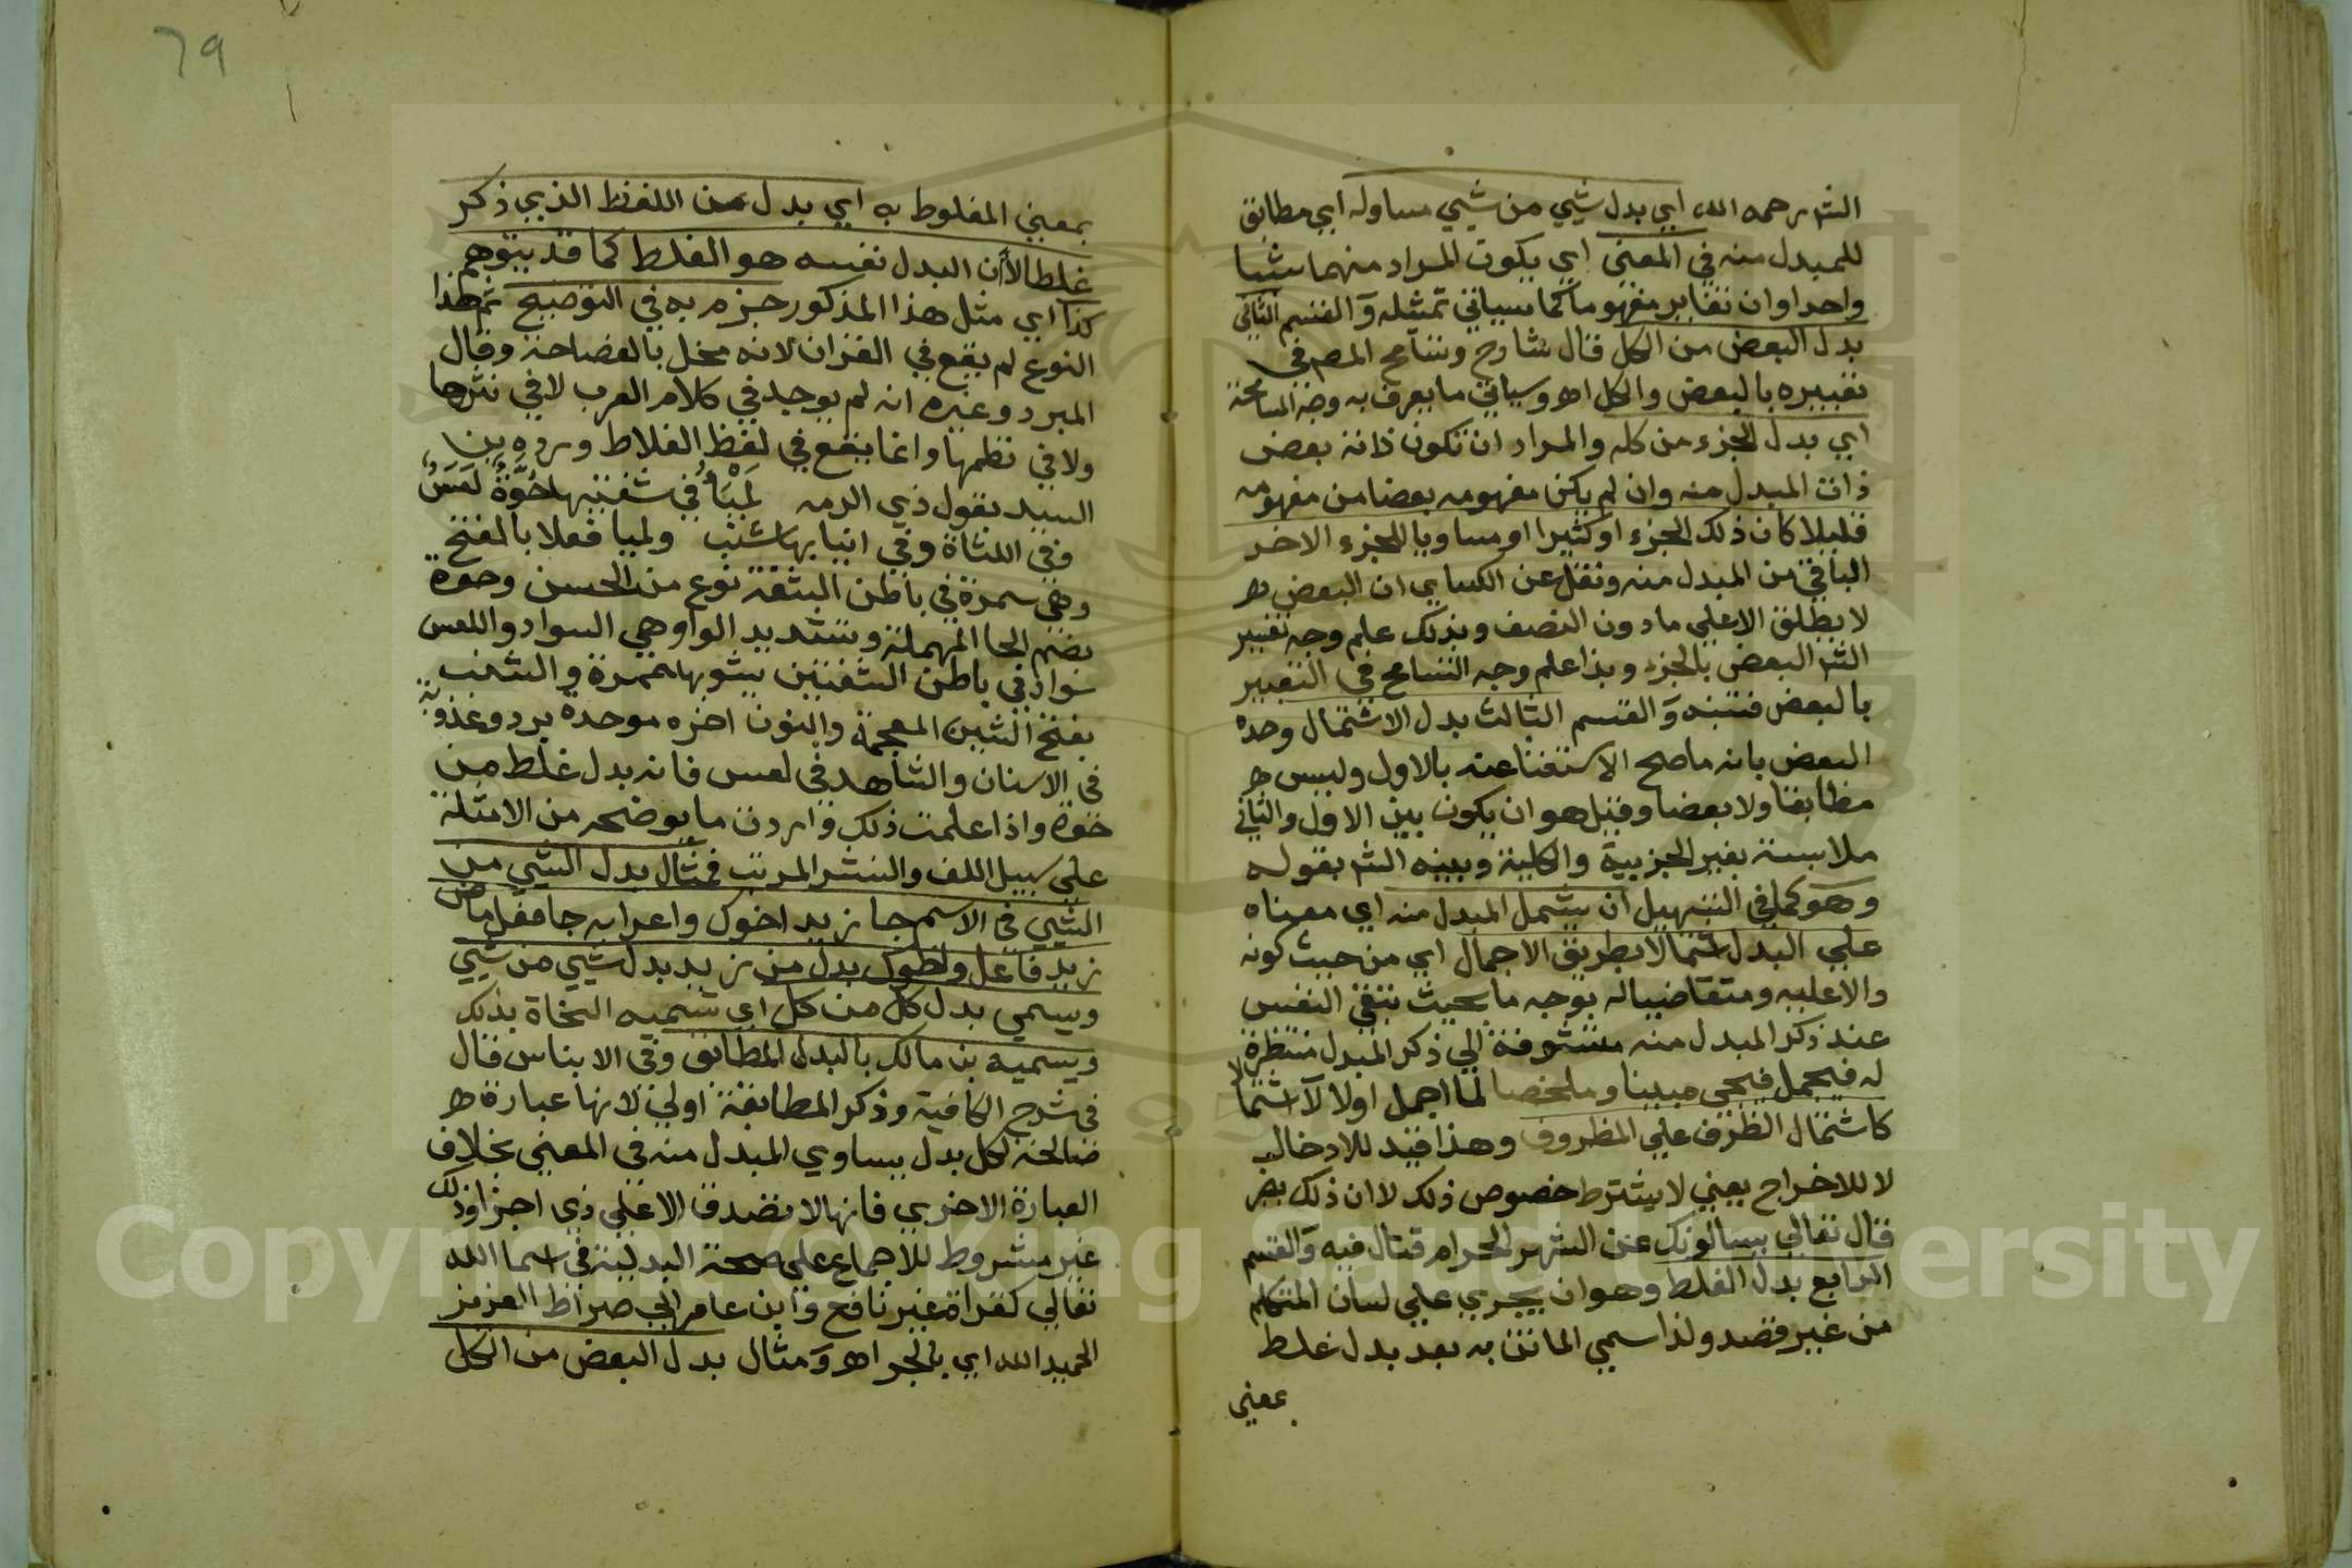 الش رحمه الله اي بدل شيي من شيي مساوله اي مطابق
للمبدل منه في المعني اي يكون المراد منهما شيا
واحدا وان تغاير مفهوما كما سياتي تمثله والقسم الثاني
بدل البعض من الكل قال شارح وتسامح المص في
تعبيره بالبعض والكل اه وسياتي ما يعرف به وجه المسامحة
اي بدل الجزء من كله والمراد ان تكون ذاته بعض
ذات المبدل منه وان لم يكن مفهومه بعضا من مفهومه
قليلا كان ذلك الجزء او كثيرا او مساويا للجزء الاخر
الباقي من المبدل منه ونقل عن الكساي ان البعض
لا يطلق الا علي ما دون النصف وبذلك علم وجه تعبير
الش البعض بالجزء وبذا علم وجه التسامح في التعبير
بالبعض فتنبه والقسم الثالث بدل الاشتمال وحده
البعض بانه ما صح الاستغنا عنه بالاول وليس
مطابقا ولا بعضا وقيل هو ان يكون بين الاول والثاني
ملابسة بغير الجزيية والكلية وبينه الش بقوله
وهو كما في التسهيل ان يشمل المبدل منه اي معناه
علي البدل اشتمالا بطريق الاجمال اي من حيث كونه
دالا عليه ومتقاضيا له بوجه ما بحيث تبقي النفس
عند ذكر المبدل منه متشوقة الي ذكر المبدل منتظرة
له فيجمل فيجي مبينا وملخصا لما اجمل اولا لا اشتما
كاشتمال الظرف علي المظروف وهذا قيد للادخال
لا للاخراج يعني لا يشترط خصوص ذلك لا ان ذلك يضر
قال تعالي يسالونك عن الشهر الحرام قتال فيه والقسم
الرابع بدل الغلط وهو ان يجري علي لسان المتكلم
من غير قصد ولذا سمي الماتن به بعد بدل غلط
بمعني
79
بمعني المغلوط به اي بدل من اللفظ الذي ذكر
غلطا لا ان البدل نفسه هو الغلط كما قد يتوهم
كذا اي مثل هذا المذكور جزم به في التوضيح ثم هذا
النوع لم يقع في القران لانه مخل بالفصاحة وقال
المبرد وغيره انه لم يوجد في كلام العرب لا في نثرها
ولا في نظمها وانما يقع في لفظ الغلاط ورده بن
السيد بقول ذي الرمه لمياء في شفتيها حوة لعس
وفي اللثاة وفي انيابها شنب ولميا فعلا بالفتح
وهي سمرة في باطن الشفة نوع من الحسن وحوة
بضم الحا المهملة وتشديد الواو هي السواد واللعس
سواد في باطن الشفتين يشوبها حمرة والشنب
بفتح الشين المعجمة والنون اخره موحدة برد وعذوبة
في الاسنان والشاهد في لعس فانه بدل غلط من
حوة واذا علمت ذلك واردت ما يوضحه من الامثلة
علي سبيل اللف والنشر المرتب فمثال بدل الشيي من
الشيي في الاسم جا زيد اخوك واعرابه جا فعل ماض
زيد فاعل واخوك بدل من زيد بدل شيي من شيي
ويسمي بدل كل من كل اي تسميه النحاة بذلك
ويسميه بن مالك بالبدل المطابق وفي الايناس قال
في شرح الكافية وذكر المطابقة اولي لانها عبارة
صالحة لكل بدل يساوي المبدل منه في المعني بخلاف
العبارة الاخري فانها لا تصدق الا علي ذي اجزا وذلك
غير مشروط للاجماع علي صحة البدلية في اسما الله
تعالي كقراة غير نافع وابن عامر الي صراط العزيز
الحميد الله اي بالجر اه ومثال بدل البعض من الكل
Copyright © King Saud University